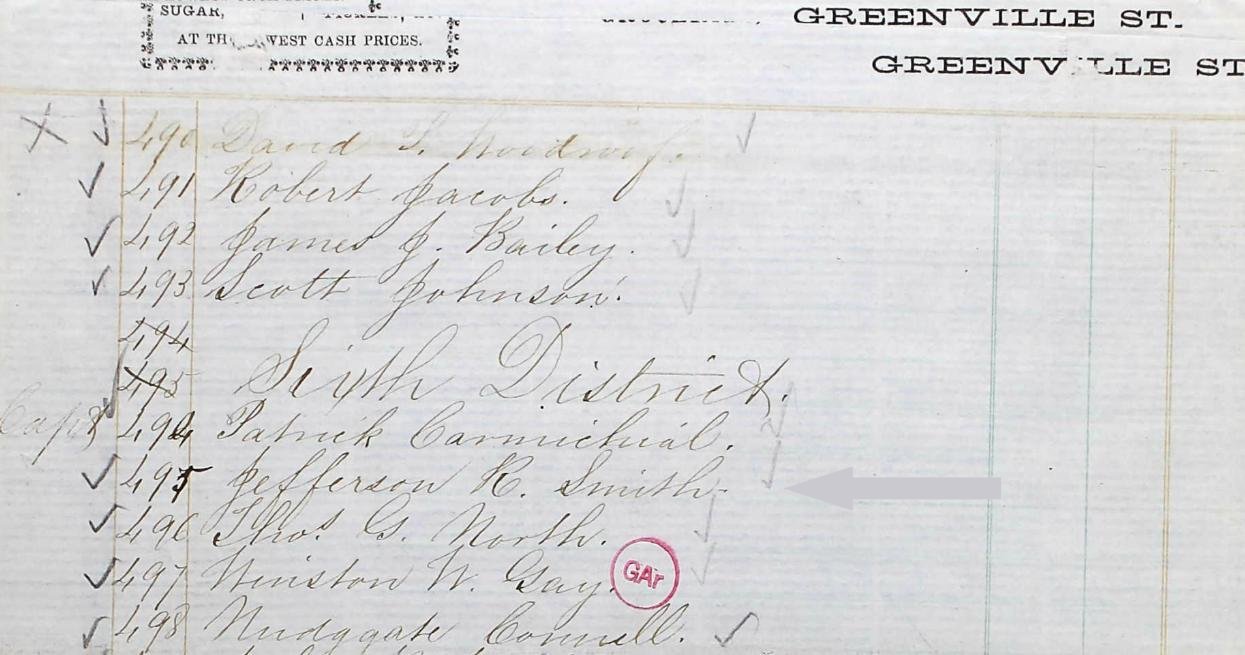 SUGAR,
AT TH WEST CASH PRICES.
GREENVILLE ST.
GREENV LLE ST
490 David
491 Robert Jacobs.
492 James J. Bailey.
493 Scott Johnson.
494
495 Sixth District.
494 Patrick Carmichial.
495 Jefferson R. Smith
496 Thos. G. North.
497 Winston W. Gay.
GAr
498 Connell.